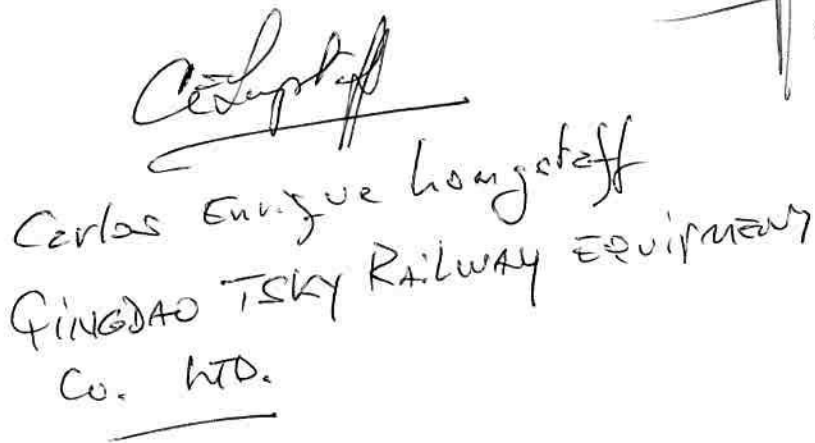 Carlos Enrique Longstaff
QINGDAO TSKY RAILWAY EQUIPMENT
Co. LTD.